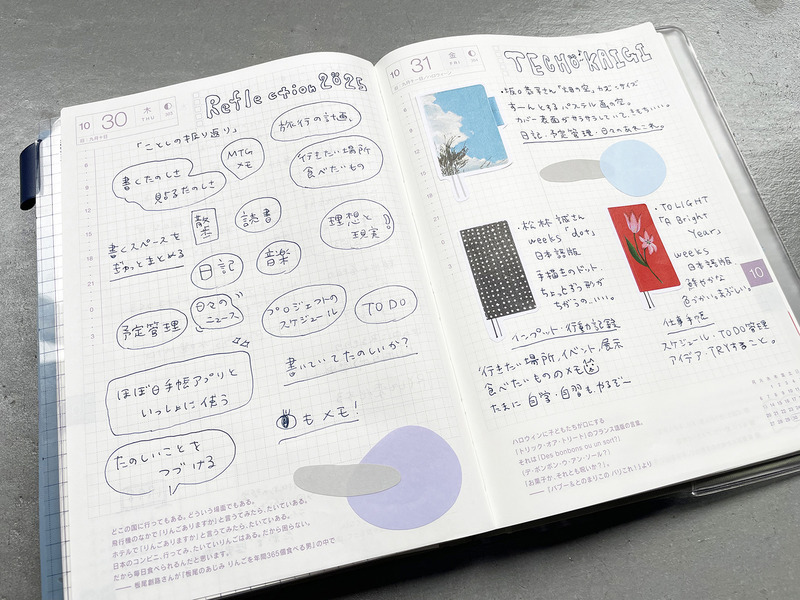 10
30
木
THU
Reflection 2025
「ことしの振り返り」
MTG
メモ
旅行の計画、
行きたい場所
食べたいもの
書くたのしさ
見返るたのしさ
散歩
読書
理想と
現実
書くスペースを
ぎゅっとまとめる
日記
音楽
予定管理
日々の
ニュース
プロジェクトの
スケジュール
TODO
書いていてたのしいか?
ほぼ日手帳アプリと
いっしょに使う
もメモ!
たのしいことを
つづける
どこの国に行ってもある。どういう場面でもある。
飛行機のなかで「りんごありますか」と言うてみたら、たいていある。
ホテルで「りんごありますか」と言うてみたら、たいていある。
日本のコンビニ、行ってみ、たいていりんごはある。だから困らない。
だから毎日食べられるんだと思います。
―― 板尾創路さんが『板尾のあじみ りんごを年間365個食べる男』の中で
10
31
金
FRI
TECHO KAIGI
ちーんとする パステル画の空。
カバー表面がサラサラしていてきもちいい。
日記・予定管理・日々のあれこれ。
・松林誠さん
weeks「dot」
日本語版
手描きのドット、
ちょっとずつ形が
ちがうの、いい。
・TO LIGHT
「A Bright
Year」
weeks
日本語版
鮮やかな
色づかいがまぶしい。
10
インプット・行動記録
行きたい場所、イベント、展示
食べたいもののメモ
たまに自学・自習もやるぞ〜
仕事手帳
スケジュール・TODO管理
アイデア・TRYすること。
ハロウィンに子どもたちが口にする
「トリック・オア・トリート」のフランス語版の言葉。
それは「Des bonbons ou un sort?」
(デ・ボンボン・ウ・アン・ソール?)
「お菓子か、それとも呪いか?」。
―― 『バブー&とのまりこの パリこれ!』より